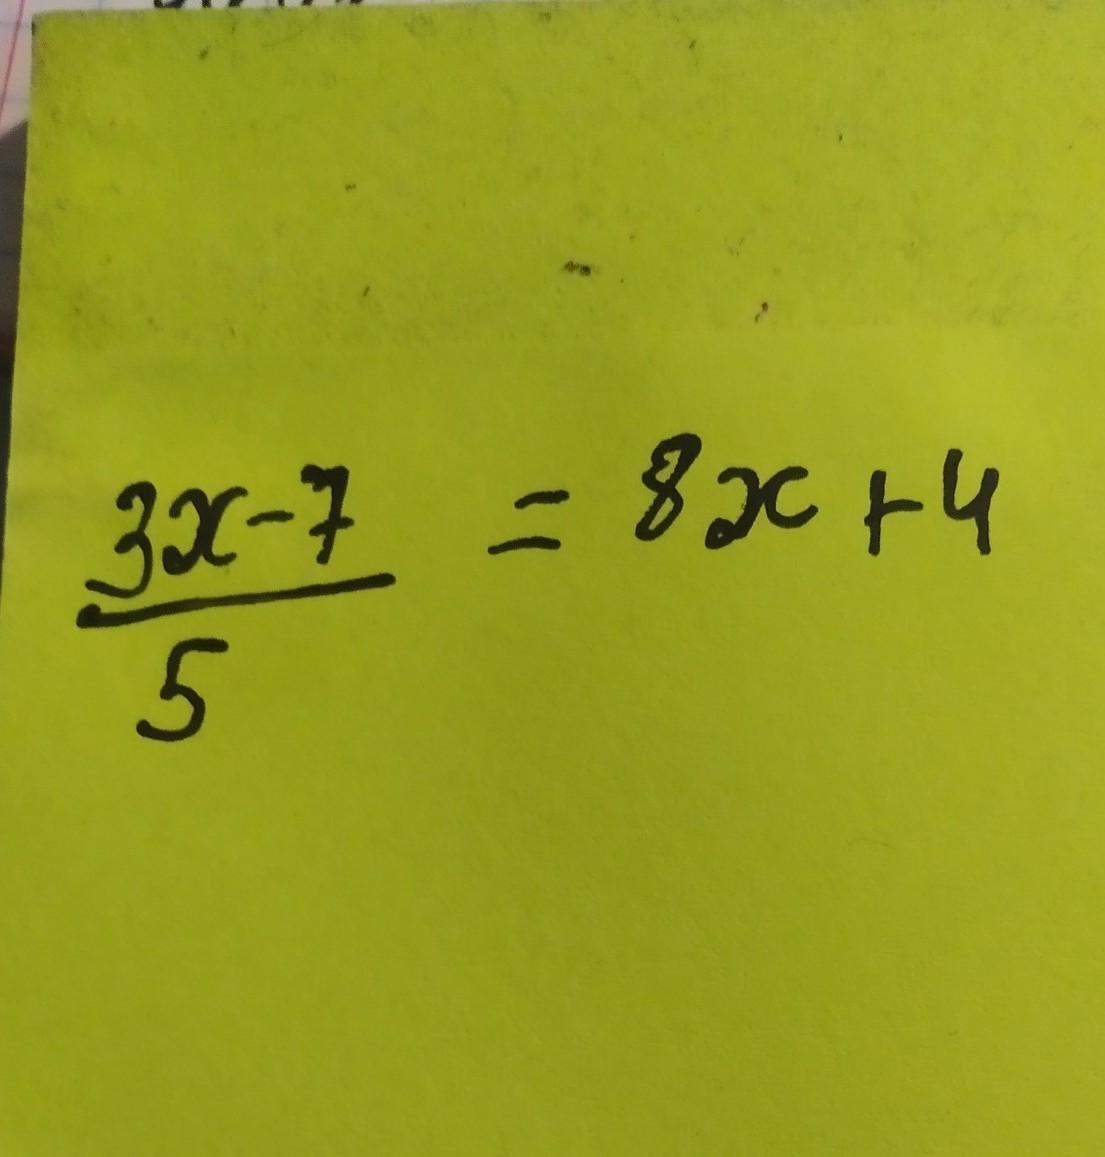 3x-7 = 8x+4
5